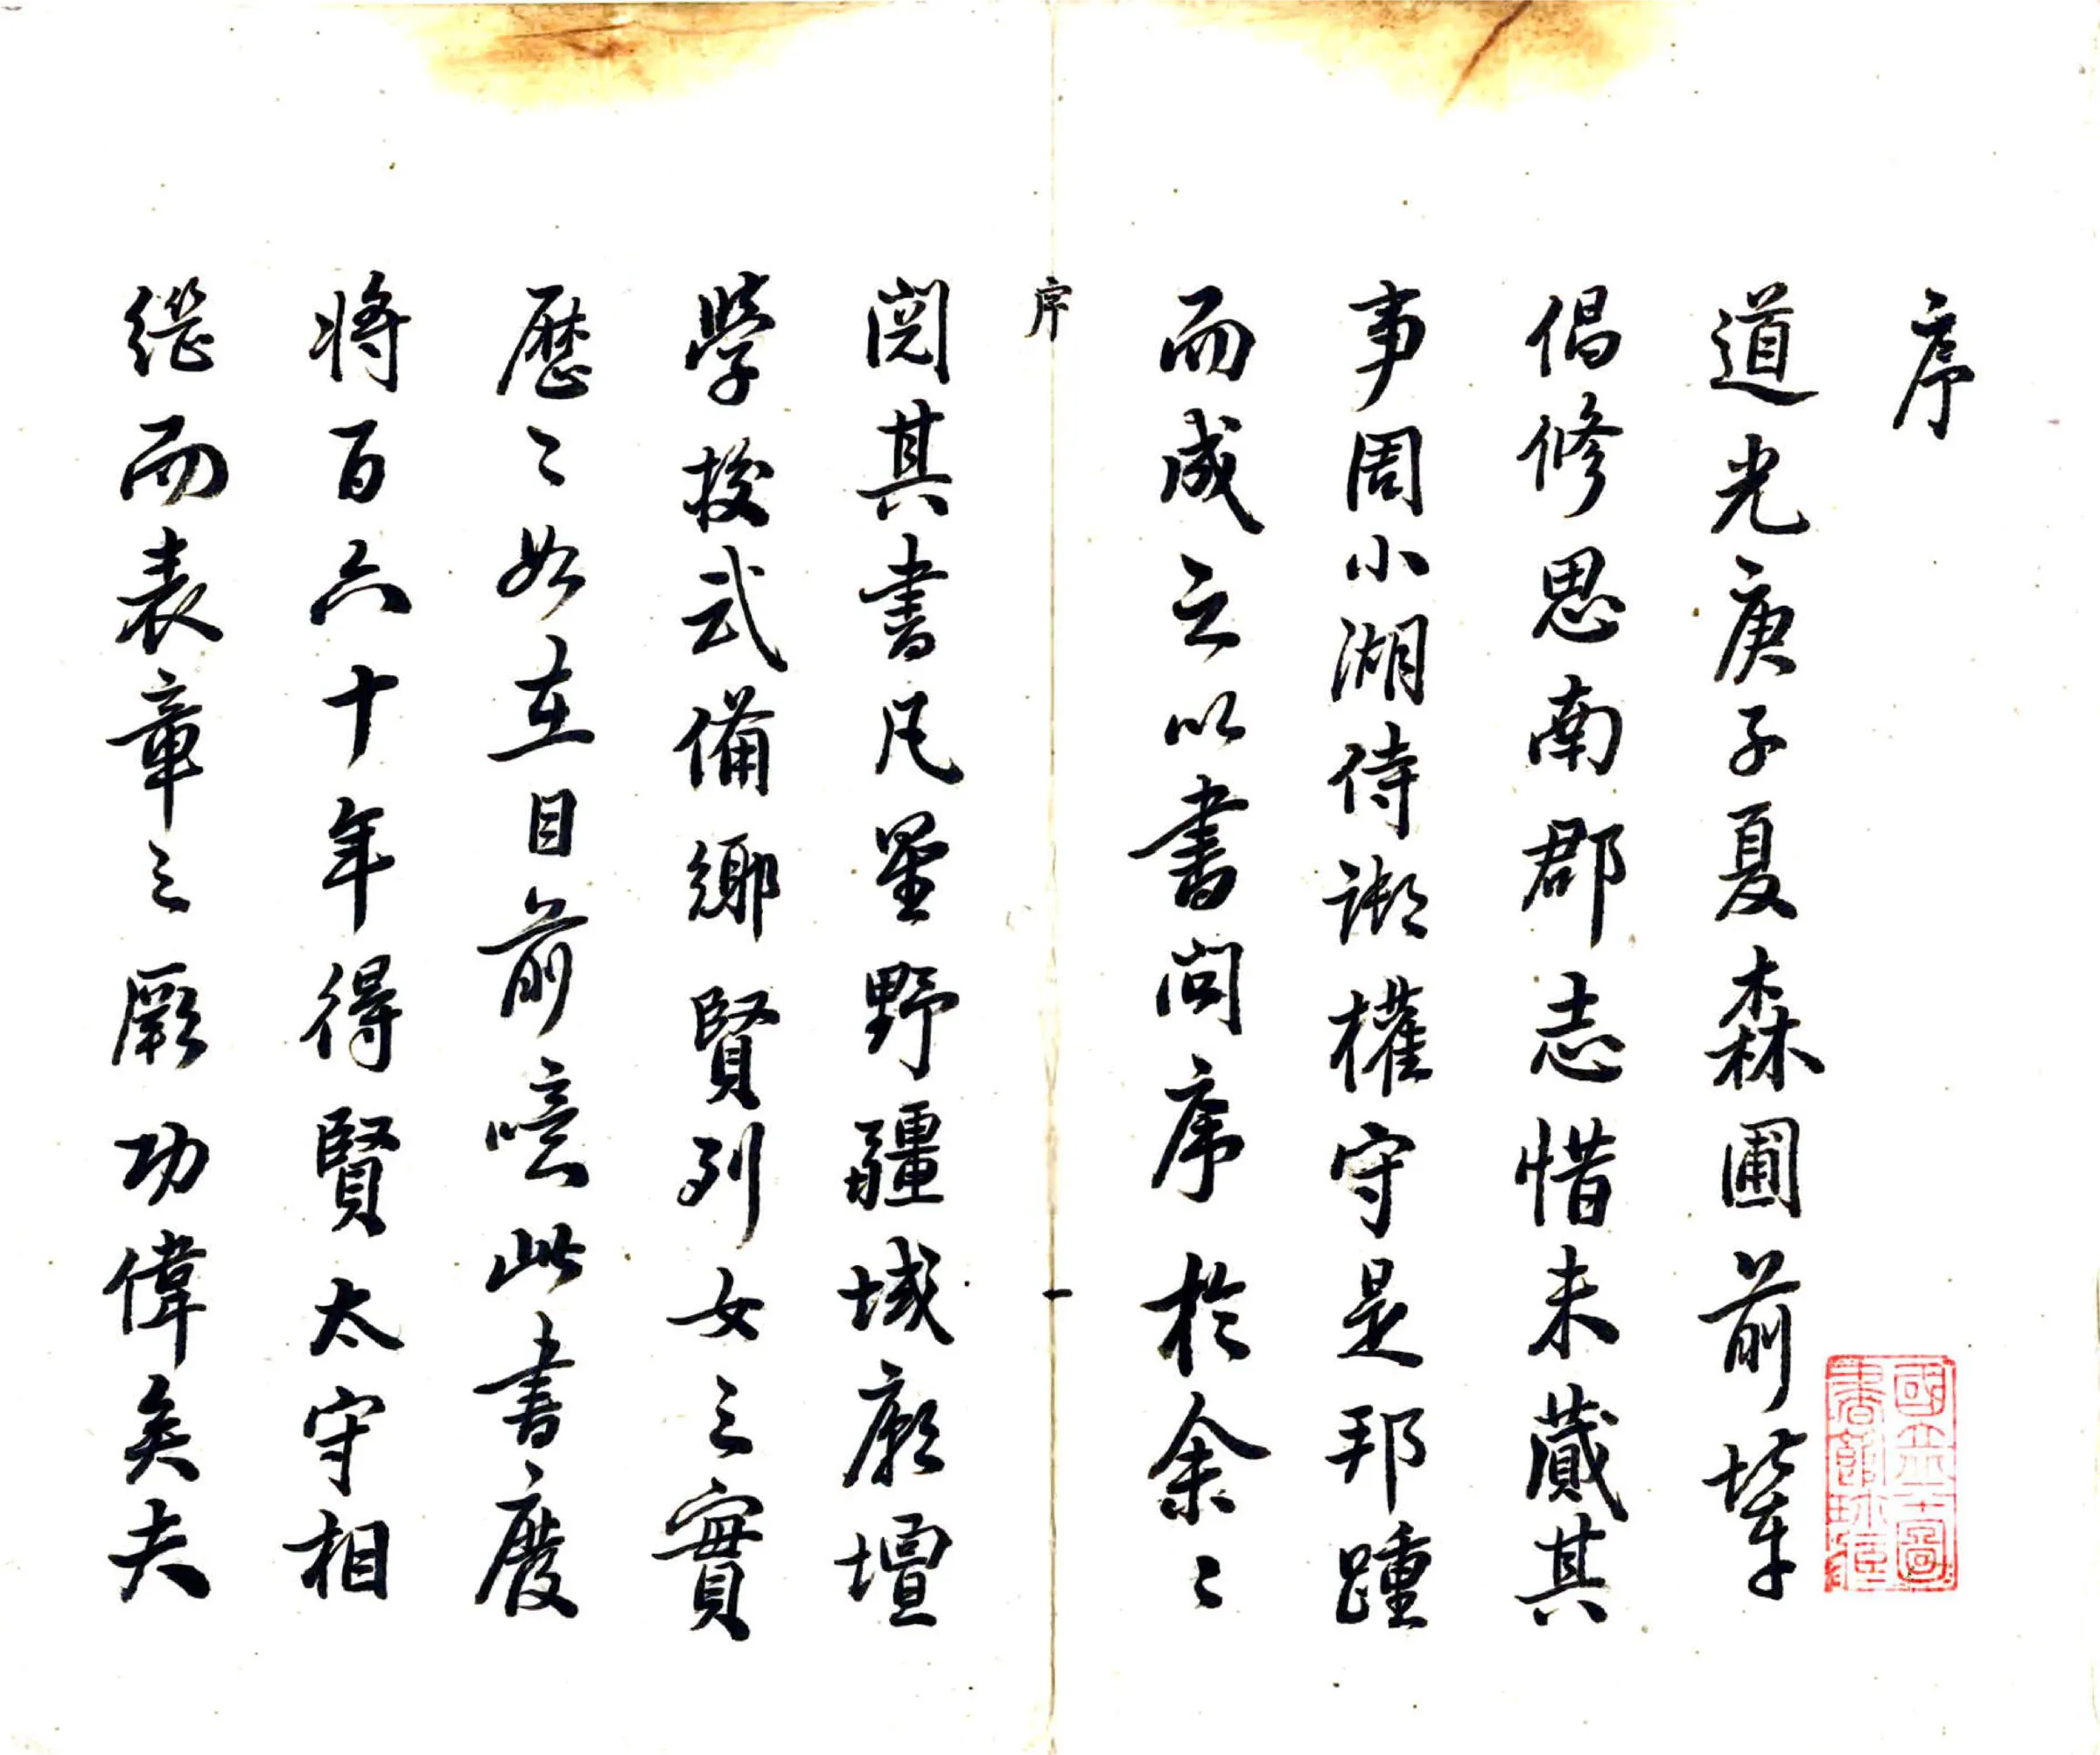 序
道光庚子夏森圃前輩
倡修思南郡志惜未蕆其
事周小湖侍御權守是邦踵
而成之以書問序於余〻
序
一
閱其書凡星野疆域廟壇
學校武備鄉賢列女之實
歷〻如在目前噫此書廢
將百六十年得賢太守相
繼而表章之厥功偉矣夫
國立圖
書館珍藏